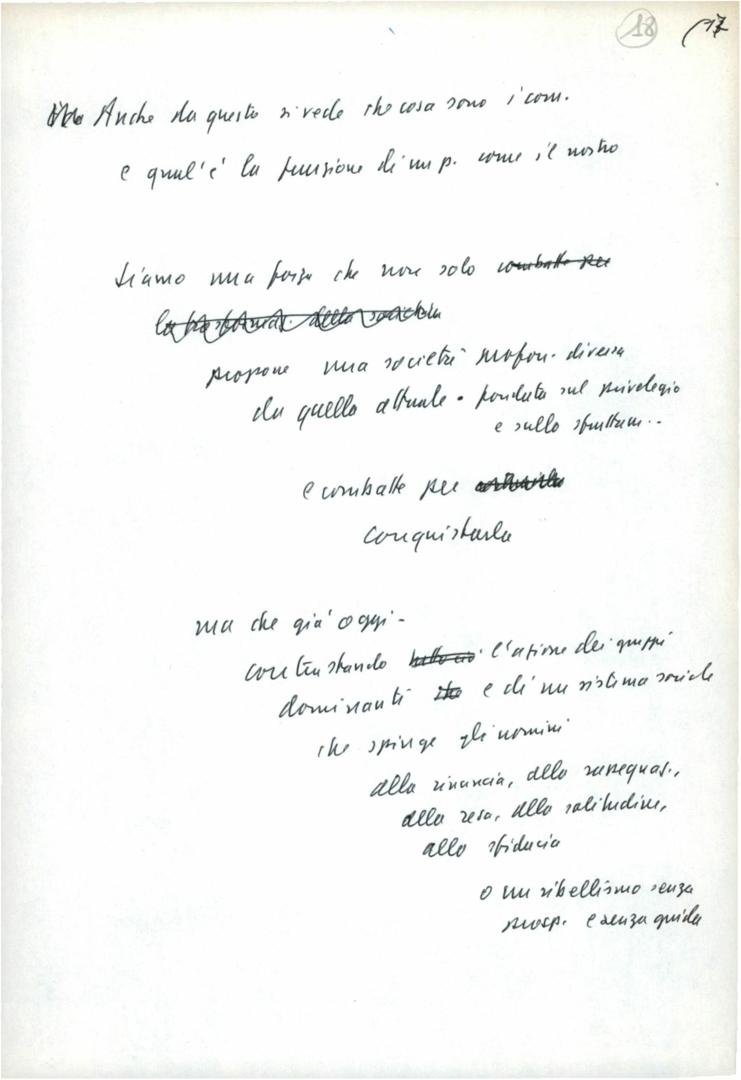 18 17
Anche da questo si vede che cosa sono i com.
e qual'è la funzione di un p. come il nostro
Siamo una forza che non solo combatte per
la trasformaz. della società
propone una società profon. diversa
da quella attuale - fondata sul privilegio
e sullo sfruttam..
e combatte per
conquistarla
ma che già oggi -
contrastando l'azione dei gruppi
dominanti e di un sistema sociale
che spinge gli uomini
alla rinuncia, alla rassegnaz.,
alla resa, alla solitudine,
alla sfiducia
o un ribellismo senza
prosp. e senza guida